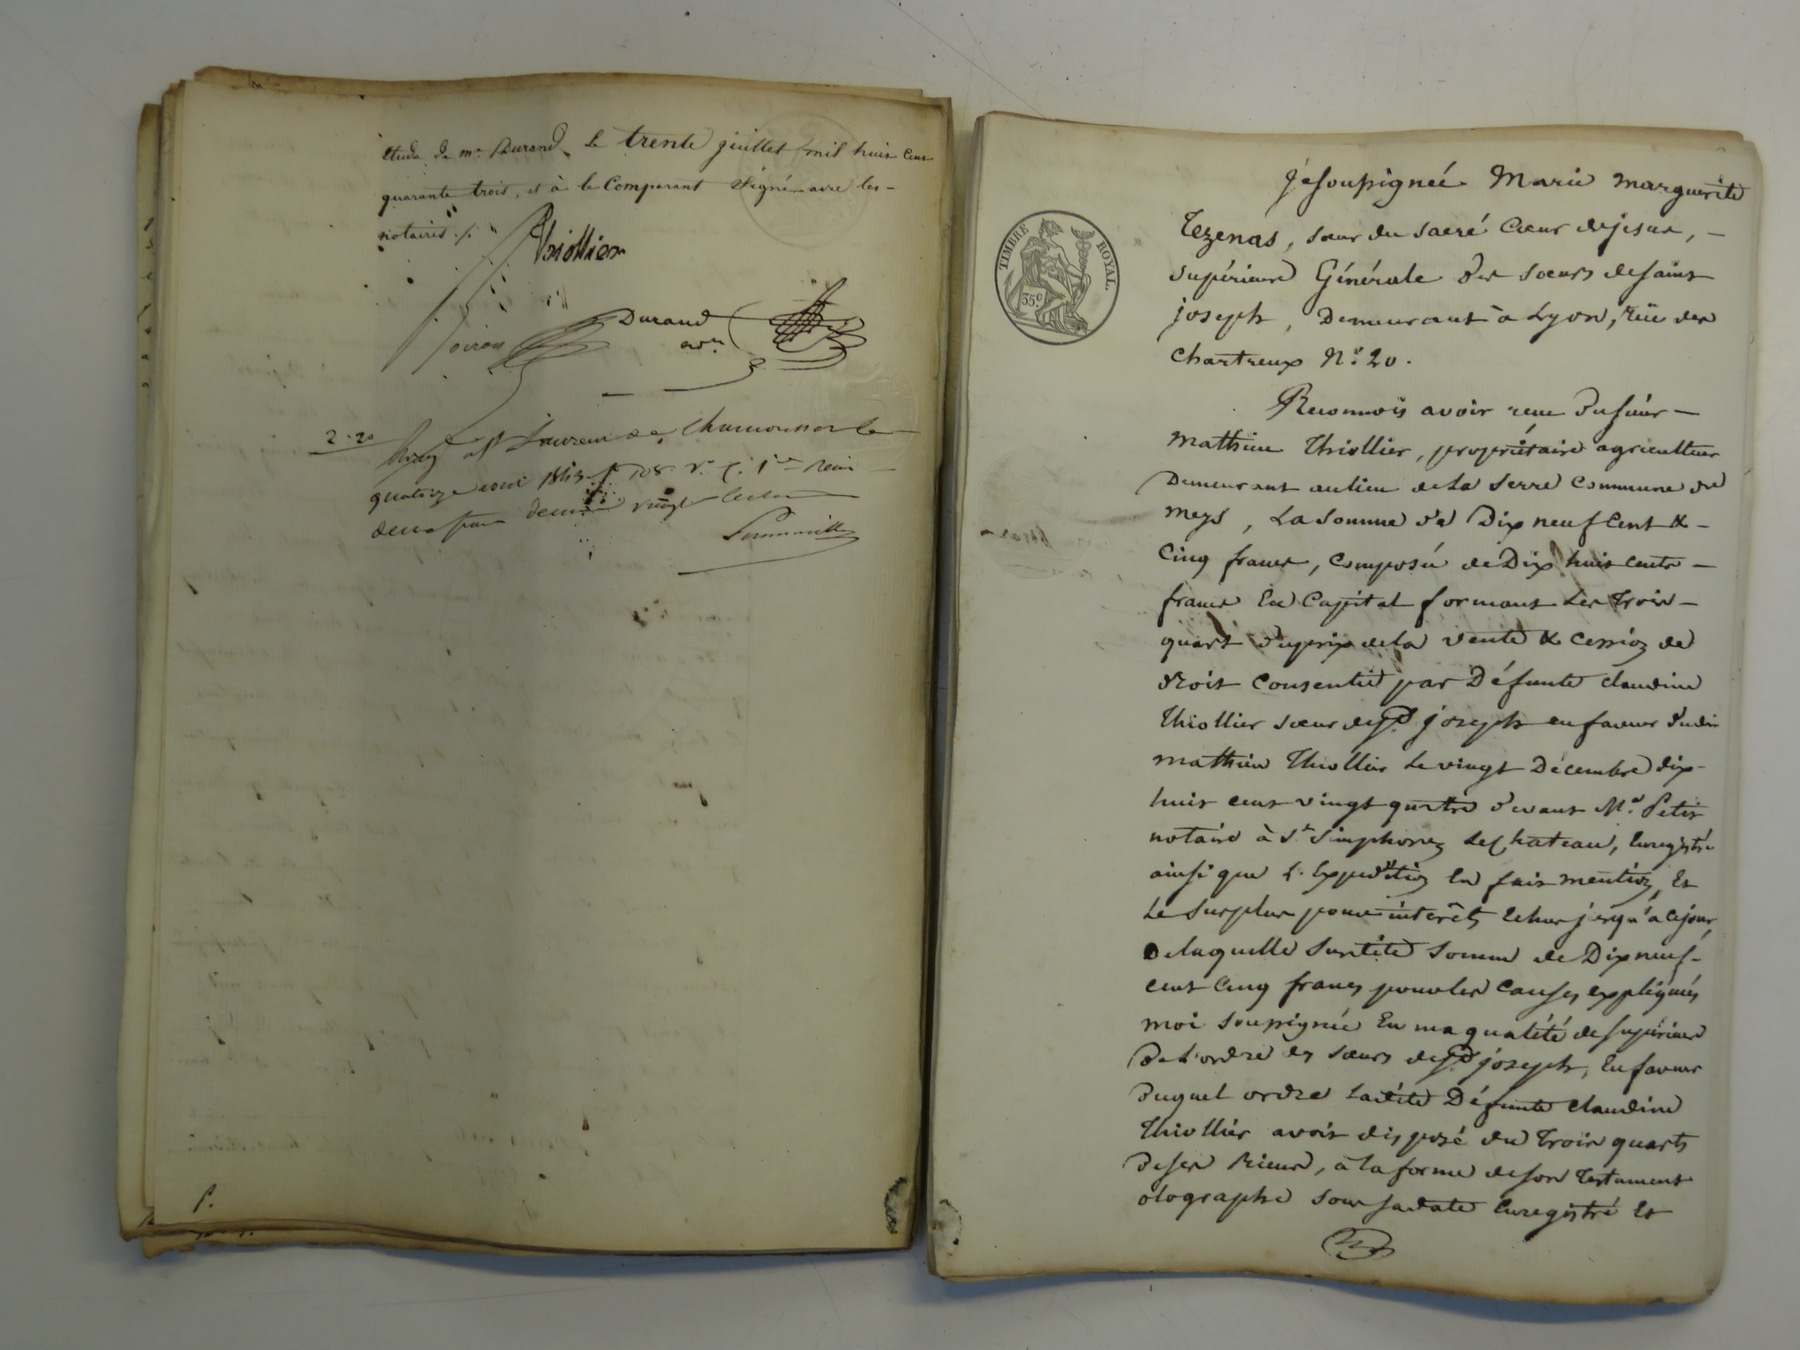 étude de me Durand, le trente juillet mil huit cent
quarante trois, et à le Comparant signé avec les
notaires ./.
Thiollier
Durand
2-20
St Laurent de Chamousset le
quatorze aout 1843 fo 108 vo c. 1re reçu
deux francs decime vingt centimes
P.
TIMBRE ROYAL.
35c
jesoussignée Marie marguerite
Tezenas, sœur du sacré Cœur dejesus, -
supérieure Générale des sœurs desaint
joseph, Demeurant à Lyon, rüe des
Chartreux No. 20.
Reconnois avoir reçu dusieur -
mathieu Thiollier, propriétaire agriculteur
Demeurant aulieu dela Serre Commune de
meys, La Somme de Dix neuf Cent &
Cinq francs, Composée de Dix huit cents -
francs En Capital formant Les trois -
quart duprix dela vente & Cession de
droit Consentie par Défunte Claudine
Thiollier sœur de St joseph enfaveur dudit
mathieu Thiollier Le vingt Décembre dix-
huit cent vingt quatre devant Me. Petit
notaire à St Simphorien LeChateau, Enregistré
ainsi que L'Expedition En fait mention, Et
Le Surplus pour intérêts Echus jusqu'a cejour,
Delaquelle Susdite Somme de Dix neuf-
cent Cinq francs pour les Causes expliquées
moi soussignée En ma qualité de supérieure
De L'ordre des sœurs de St joseph, En faveur
Duquel ordre Ladite Défunte Claudine
Thiollier avoit disposé des Trois quarts
Deses Biens, à la forme deson Testament
olographe sous sadate Enregistré Et